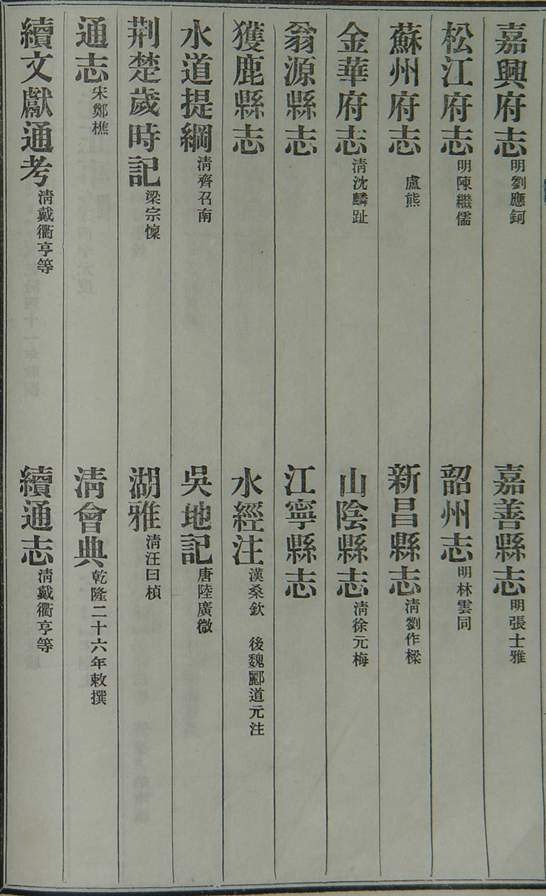 嘉興府志 明劉應鈳
嘉善縣志 明張士雅
松江府志 明陳繼儒
韶州志 明林雲同
蘇州府志 盧熊
新昌縣志 清劉作樑
金華府志 清沈麟趾
山陰縣志 清徐元梅
翁源縣志
江寧縣志
獲鹿縣志
水經注 漢桑欽 後魏酈道元注
水道提綱 清齊召南
吳地記 唐陸廣微
荆楚歲時記 梁宗懍
湖雅 清汪曰楨
通志 宋鄭樵
清會典 乾隆二十六年敕撰
續文獻通考 清戴衢亨等
續通志 清戴衢亨等